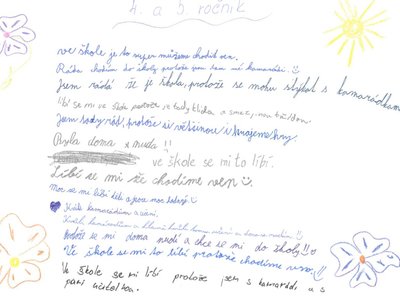 4. a 5. ročník
ve škole je to super můžeme chodit ven.
Ráda chodím do školy protože jsou tam mé kamarádi.
Jsem ráda že je škola, protože se mohu stýkat s kamarádkami
líbí se mi ve škole protože je tady klidna a smějí mou být doma
Jsem tady rád, protože si většinou i hrajeme hry.
Byla doma x nuda!!
ve škole se mi to líbí.
Líbí se mi že chodíme ven
Moc se mi líbí děti a jsou moc
kamarádům a
Protože se mi doma nudí a chce se mi do školy!!
Ve škole se mi to líbí protože chodíme ven.
Ve škole se mi líbí protože jsem s kamarády a s
paní učitelkou.